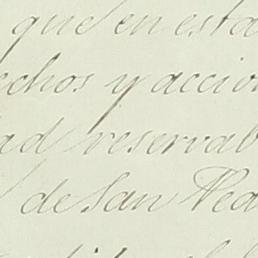 que en esta
echos y accion
ad reservab
de San Ped